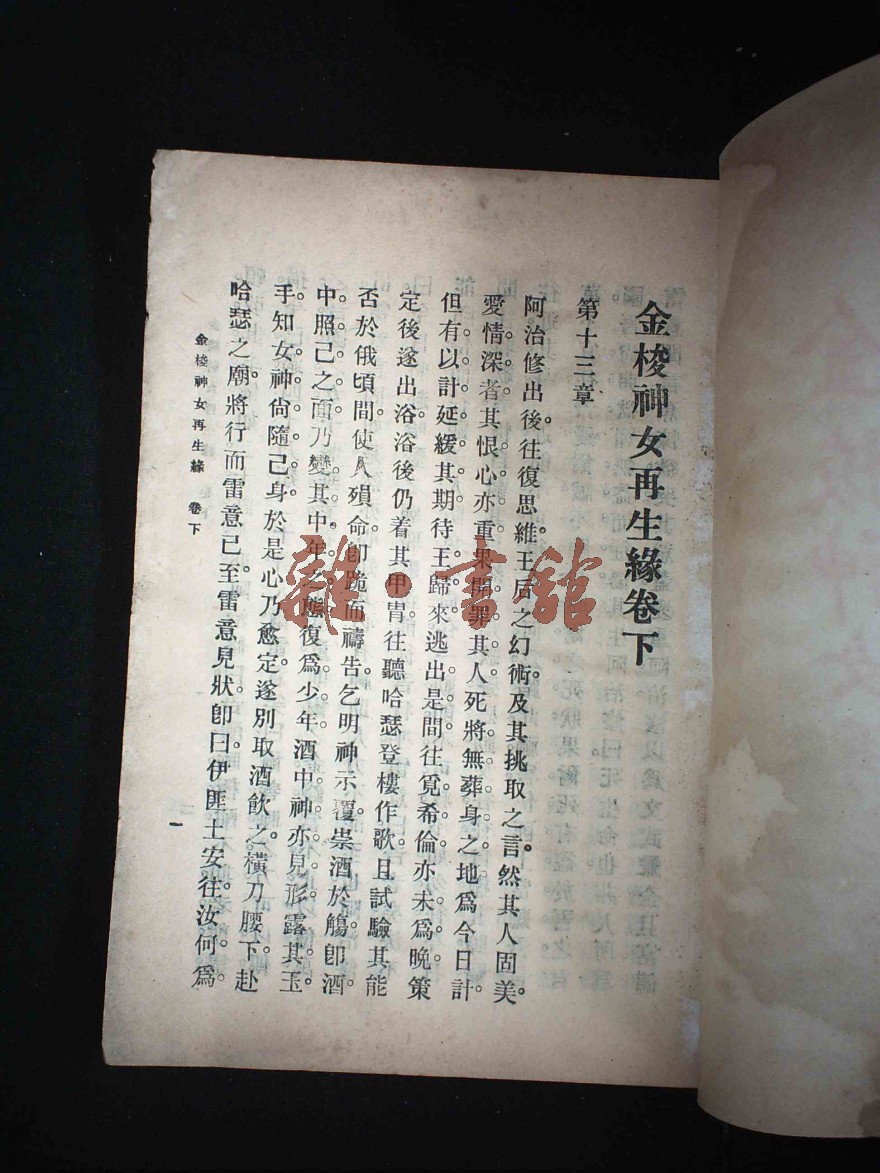 金梭神女再生緣卷下
第十三章
阿治修出後。往復思維王后之幻術。及其挑取之言。然其人固美。
愛情深者。其恨心亦重。果開罪其人。死將無葬身之地。爲今日計。
但有以計延緩其期。待王歸來。逃出是間。往覓希倫。亦未爲晚。策
定後。遂出浴。浴後仍着其甲冑。往聽哈瑟登樓作歌。且試驗其能
否於俄頃間使人殞命。卽跪而禱告。乞明神示覆。崇酒於觴。卽酒
中照己之面。乃變其中年之態。復爲少年。酒中神亦見形。露其玉
手。知女神尙隨己身。於是心乃愈定。遂別取酒飮之。橫刀腰下。赴
哈瑟之廟。將行而雷意已至。雷意見狀。卽曰。伊匪土安往。汝何爲
金梭神女再生緣 卷下
一
雜·書館